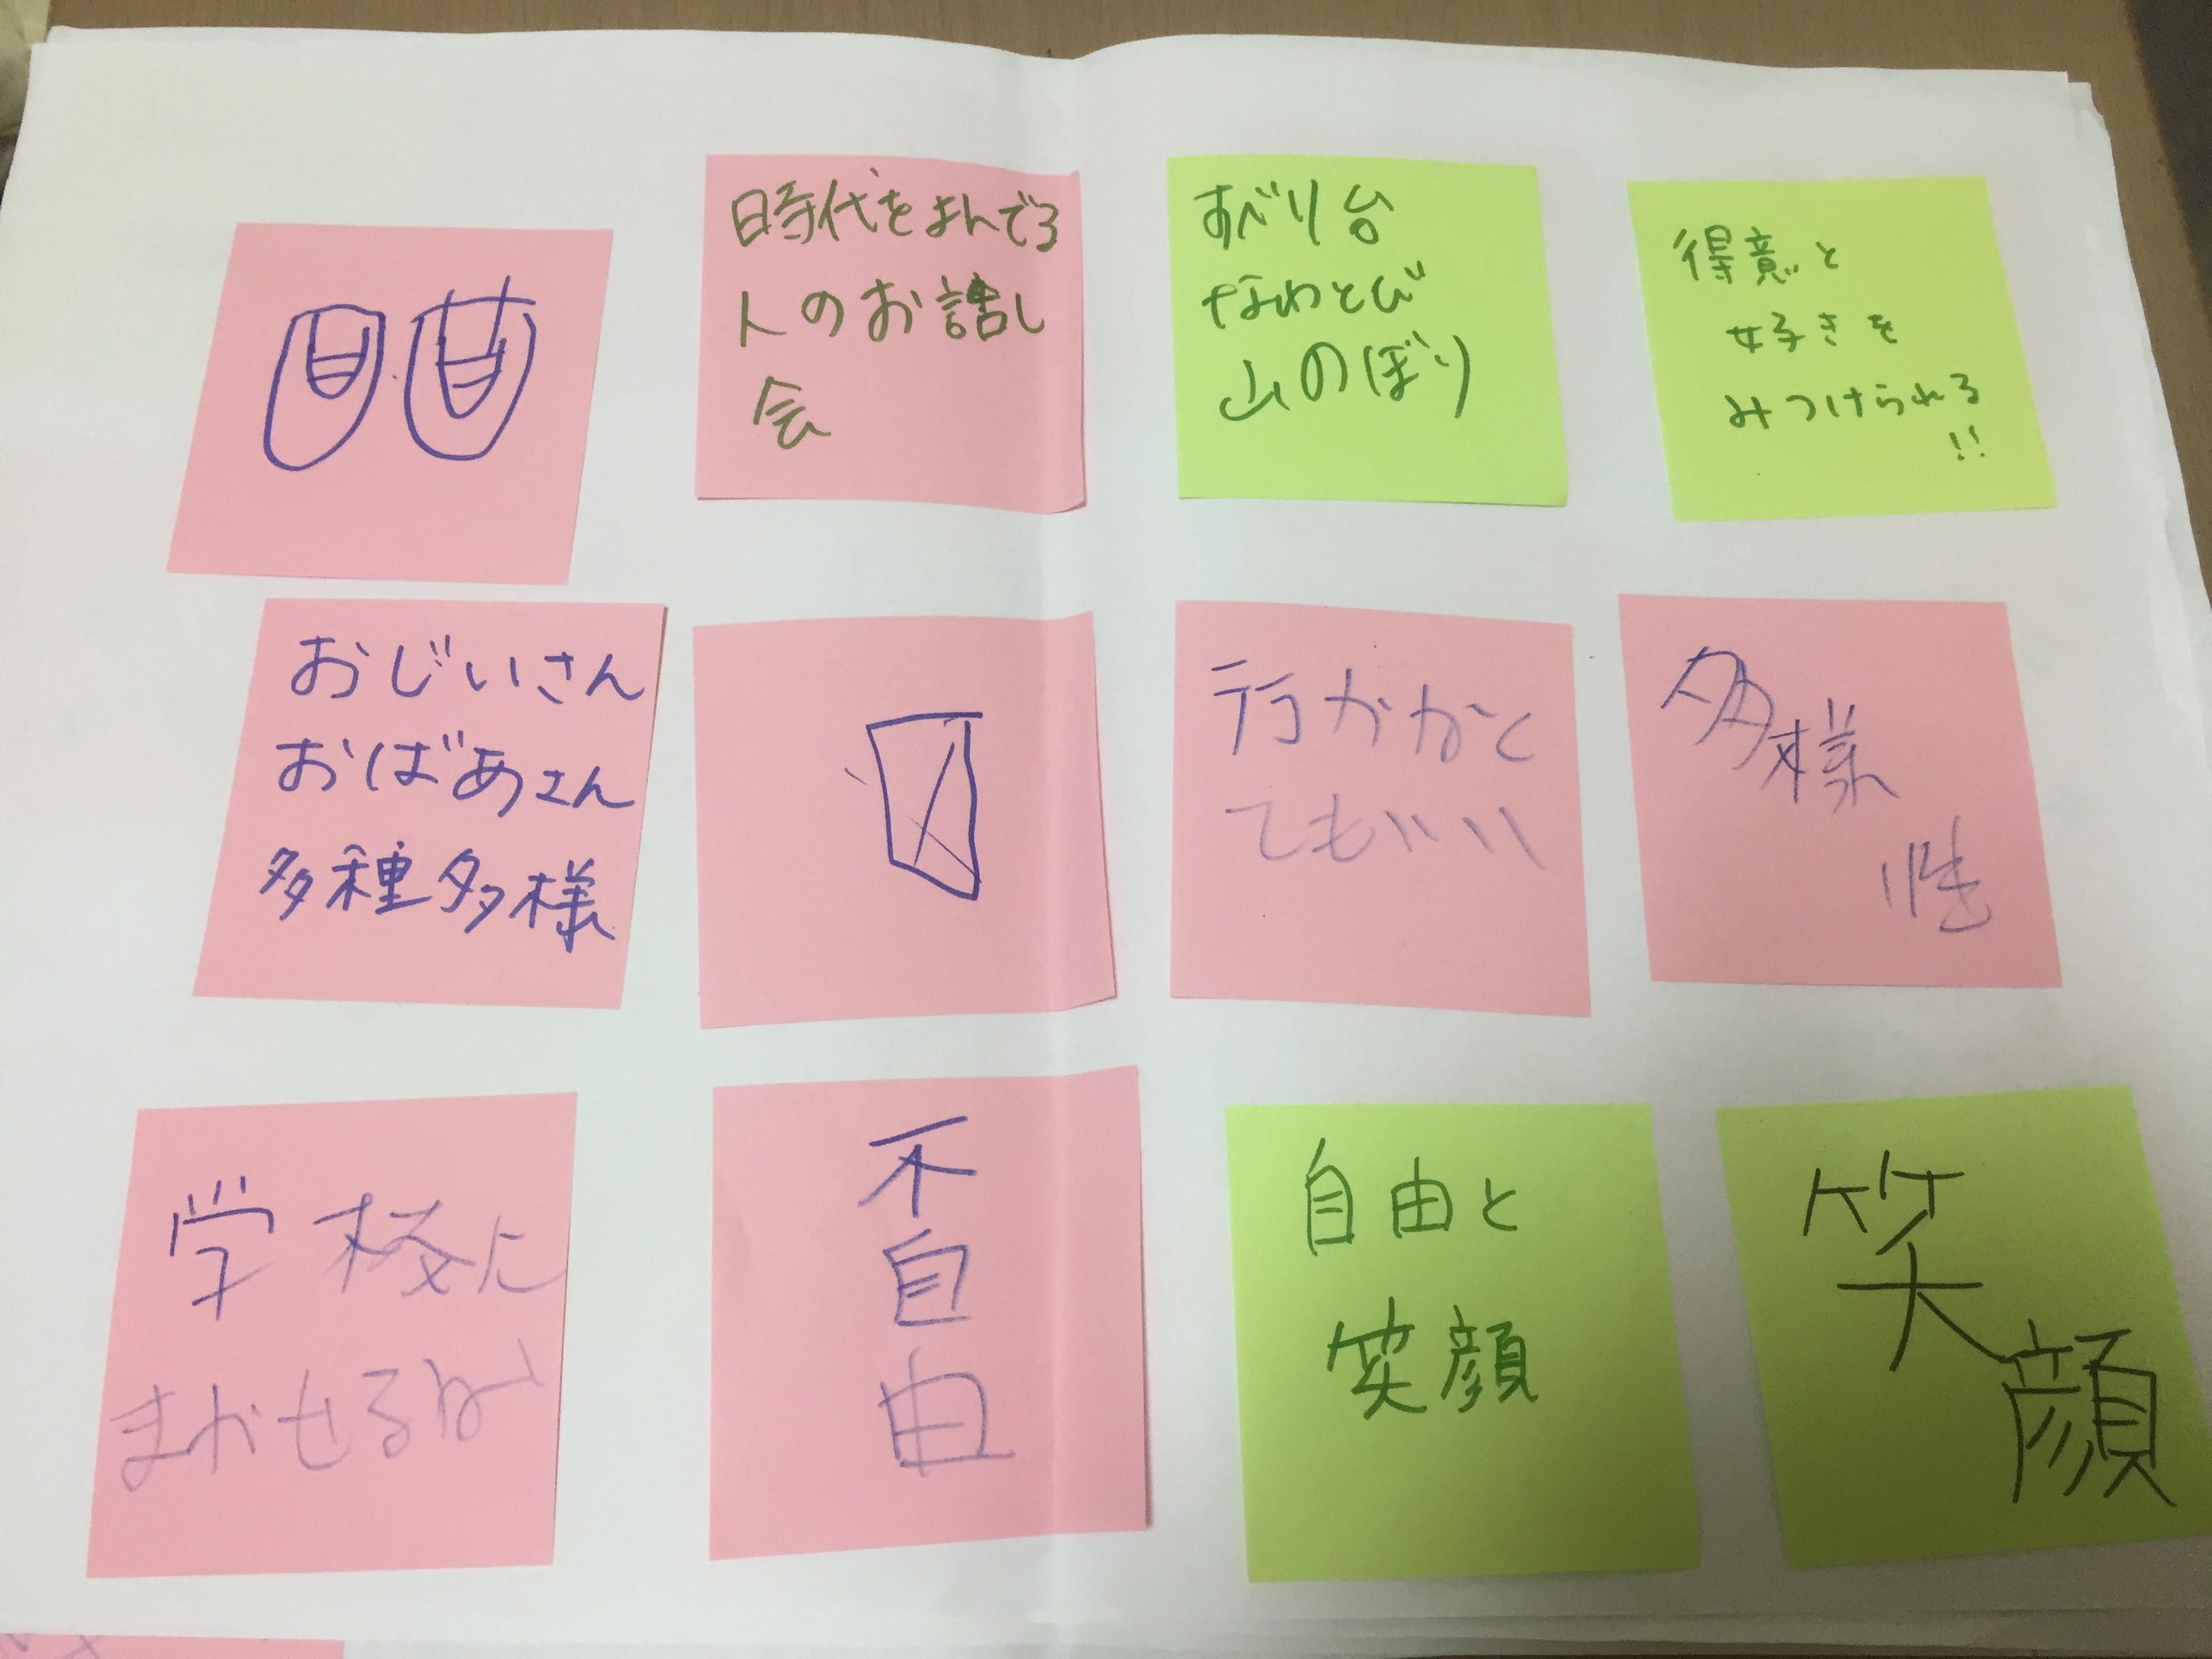 時代をよんでる
人のお話し
会
すべり台
なわとび
山のぼり
得意と
好きを
みつけられる
!!
おじいさん
おばあさん
多種多様
行かなく
てもいい
多様
性
学校に
まかせるな
不
自
由
自由と
笑顔
笑
顔